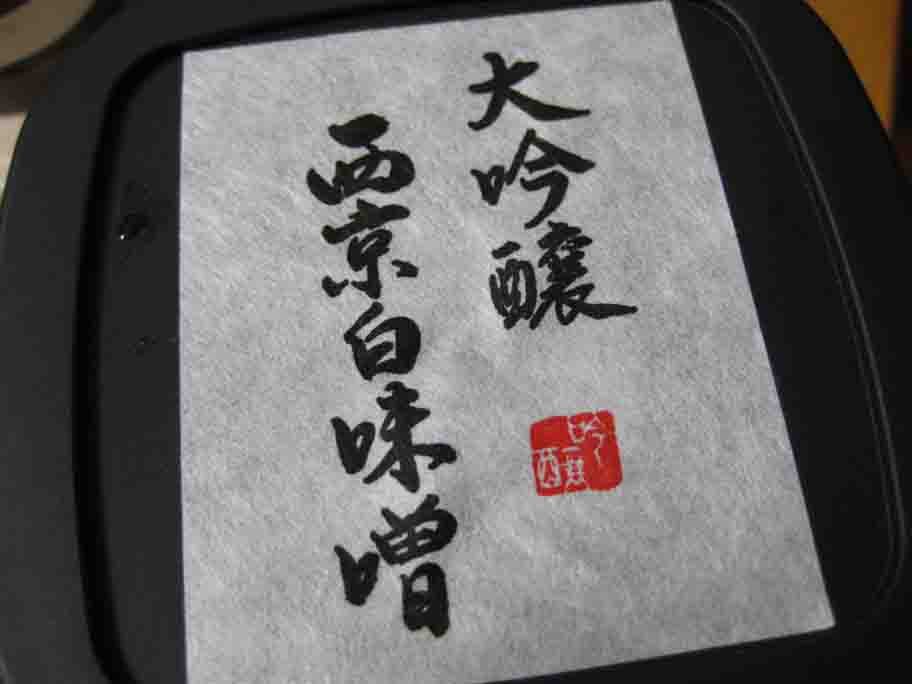 大吟醸
西京白味噌
吟醸